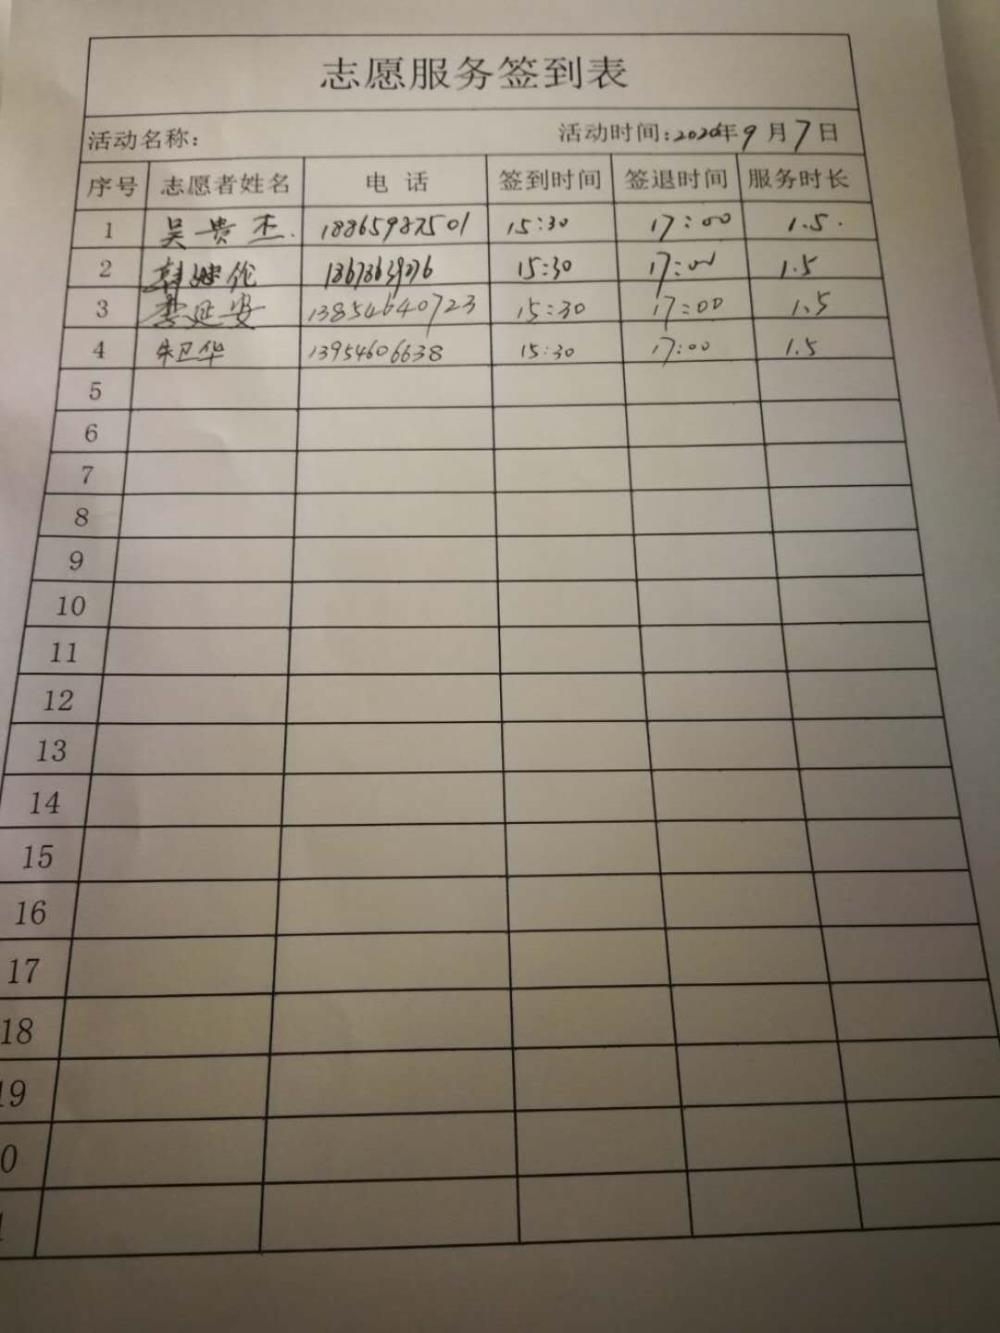 志愿服务签到表
活动名称： 活动时间：2020年9月7日
序号 志愿者姓名 电 话 签到时间 签退时间 服务时长
1 吴贵杰. 18865987501 15:30 17:00 1.5.
2 15:30 17:00 1.5
3 李延安 13854640723 15:30 17:00 1.5
4 朱卫华 13954606638 15:30 17:00 1.5
5
6
7
8
9
10
11
12
13
14
15
16
17
18
19
0
1